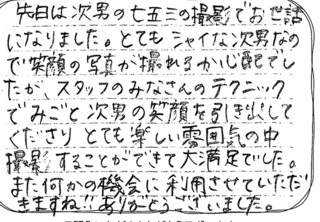 先日は次男の七五三の撮影でお世話
になりました。とてもシャイな次男なの
で笑顔の写真が撮れるか心配でし
たが、スタッフのみなさんのテクニック
でみごと次男の笑顔を引き出して
くださり とても楽しい雰囲気の中
撮影することができて大満足でした。
また何かの機会に利用させていただ
きますね!! ありがとうございました。